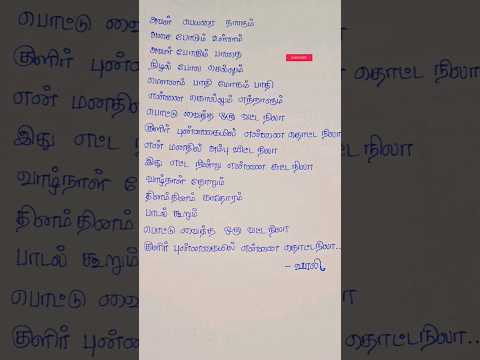 அவள் பெயரை நாளும்
அசை போடும் உள்ளம்
அவள் போகும் பாதை
நிழல் போல செல்லும்
மௌனம் பாதி மோகம் பாதி
என்னை கொல்லும் எந்நாளும்
பொட்டு வைத்த ஒரு வட்ட நிலா
குளிர் புன்னகையில் என்னை தொட்ட நிலா
என் மனதில் அம்பு விட்ட நிலா
இது எட்ட நின்று என்னை சுட்ட நிலா
வாழ்நாள் தோறும்
தினம்தினம் காதோரம்
பாடல் கூறும்
பொட்டு வைத்த ஒரு வட்ட நிலா
குளிர் புன்னகையில் என்னை தொட்ட நிலா..
- வாலி